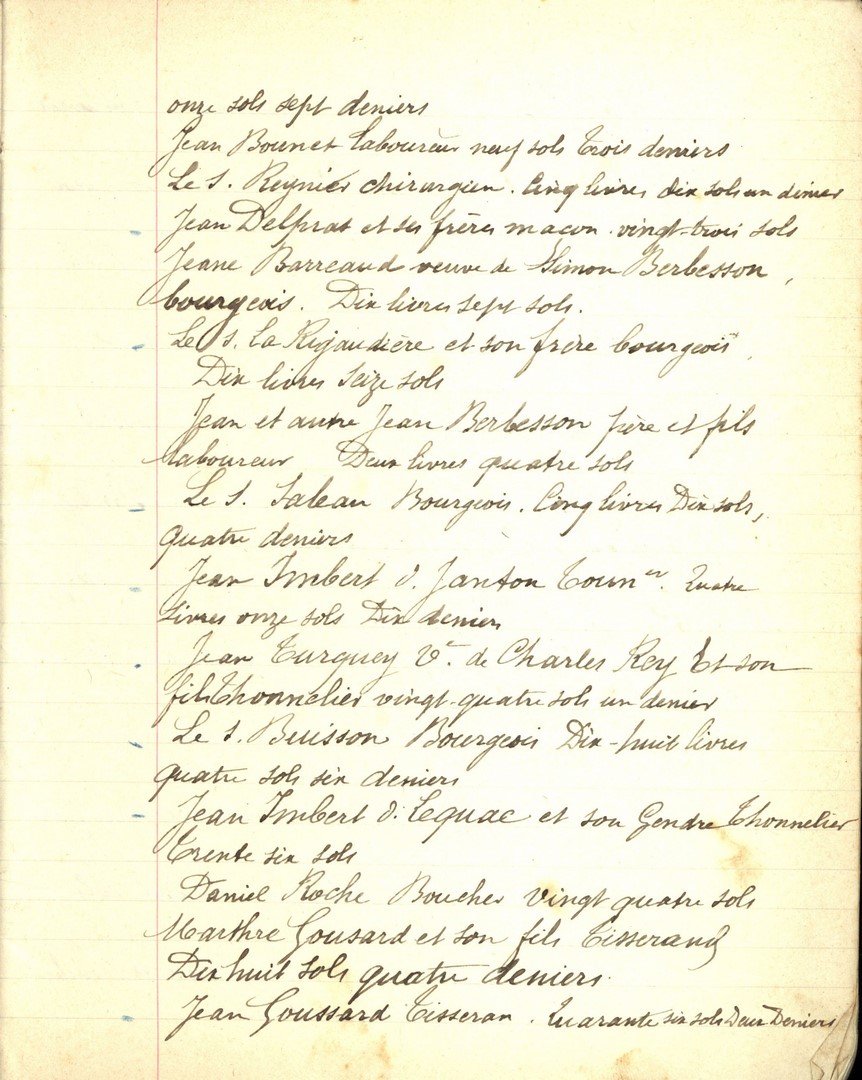 onze sols sept deniers
Jean Bounet laboureur neuf sols trois deniers
Le S. Reynier chirurgien. Cinq livres dix sols un denier
Jean Delprat et ses frères maçon. vingt-trois sols
Jeane Barreaud veuve de Simon Berbesson,
bourgeois. Dix livres sept sols.
Le S. la Rigaudière et son frère bourgeois,
Dix livres seize sols
Jean et autre Jean Berbesson père et fils
laboureur Deux livres quatre sols
Le S. Saleau Bourgeois. Cinq livres Dix sols,
quatre deniers
Jean Imbert d. Janton Toun.er. Quatre
livres onze sols Dix deniers
Jean Turquey Ve. de Charles Rey Et son
fils Thonnelier vingt-quatre sols un denier
Le S. Buisson Bourgeois Dix-huit livres
quatre sols six deniers
Jean Imbert d. Lequac et son Gendre Thonnelier
Trente six sols
Daniel Roche Boucher vingt quatre sols
Marthre Gousard et son fils Tisserand
Dix huit sols quatre deniers.
Jean Goussard Tisseran. Quarante six sols Deux Deniers